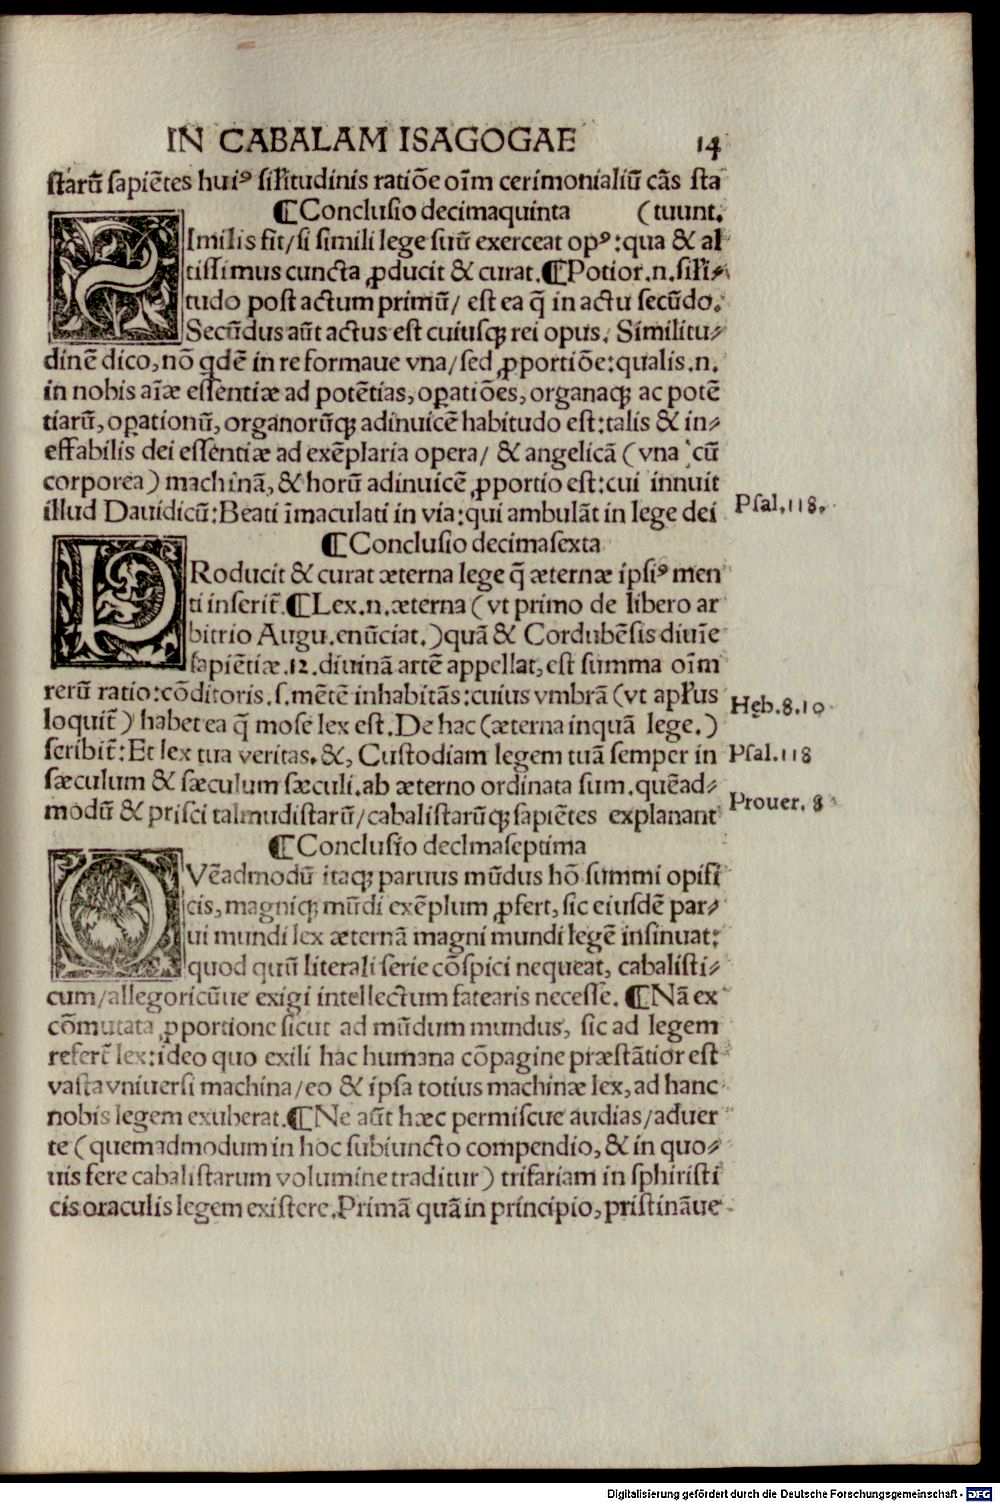 IN CABALAM ISAGOGAE 14
starū sapiētes huiꝰ siłitudinis ratiōe oīm cerimonialiū cās sta
¶Conclusio decimaquinta (tuunt.
SImilis fit/si simili lege suū exerceat opꝰ:qua & al
tissimus cuncta ꝓducit & curat.¶Potior.n.siłi⸗
tudo post actum primū/ est ea q̄ in actu secūdo.
Secūdus aūt actus est cuiusqꝫ rei opus. Similitu⸗
dinē dico,nō qdē in re formaue vna/sed ꝓportiōe:qualis.n.
in nobis aīæ essētiæ ad potētias,oꝑatiōes,organaqꝫ ac potē
tiarū,oꝑationū,organorūqꝫ adinuicē habitudo est:talis & in⸗
effabilis dei essētiæ ad exēplaria opera/ & angelicā (vna cū
corporea) machinā,& horū adinuicē ꝓportio est:cui innuit
illud Dauidicū:Beati īmaculati in via:qui ambulāt in lege dei
Psal.118.
¶Conclusio decimasexta
PRoducit & curat æterna lege q̄ æternæ ipsiꝰ men
ti inserit̄.¶Lex.n.æterna (vt primo de libero ar
bitrio Augu.enūciat.)quā & Cordubēsis diuīe
sapiētiæ.12.diuinā artē appellat,est summa oīm
rerū ratio:cōditoris.s.mētē inhabitās:cuius vmbrā (vt apłus
Heb.8.10
loquit̄) habet ea q̄ mose lex est.De hac (æterna inquā lege.)
scribit̄:Et lex tua veritas.&,Custodiam legem tuā semper in
Psal.118
sæculum & sæculum sæculi.ab æterno ordinata sum.quēad⸗
Prouer. 8
modū & prisci talmudistarū/cabalistarūqꝫ sapiētes explanant
¶Conclusio decimaseptima
QVēadmodū itaqꝫ paruus mūdus hō summi opifi
cis,magniqꝫ mūdi exēplum ꝓfert,sic eiusdē par⸗
ui mundi lex æternā magni mundi legē insinuat:
quod quū literali serie cōspici nequeat, cabalisti⸗
cum/allegoricūue exigi intellectum fatearis necesse. ¶Nā ex
cōmutata ꝓportione sicut ad mūdum mundus, sic ad legem
refert̄ lex:ideo quo exili hac humana cōpagine præstātior est
vasta vniuersi machina/eo & ipsa totius machinæ lex,ad hanc
nobis legem exuberat.¶Ne aūt hæc permiscue audias/aduer
te (quemadmodum in hoc subiuncto compendio,& in quo⸗
uis fere cabalistarum volumine traditur) trifariam in sphiristi
cis oraculis legem existere.Primā quā in principio,pristināue
Digitalisierung gefördert durch die Deutsche Forschungsgemeinschaft - DFG